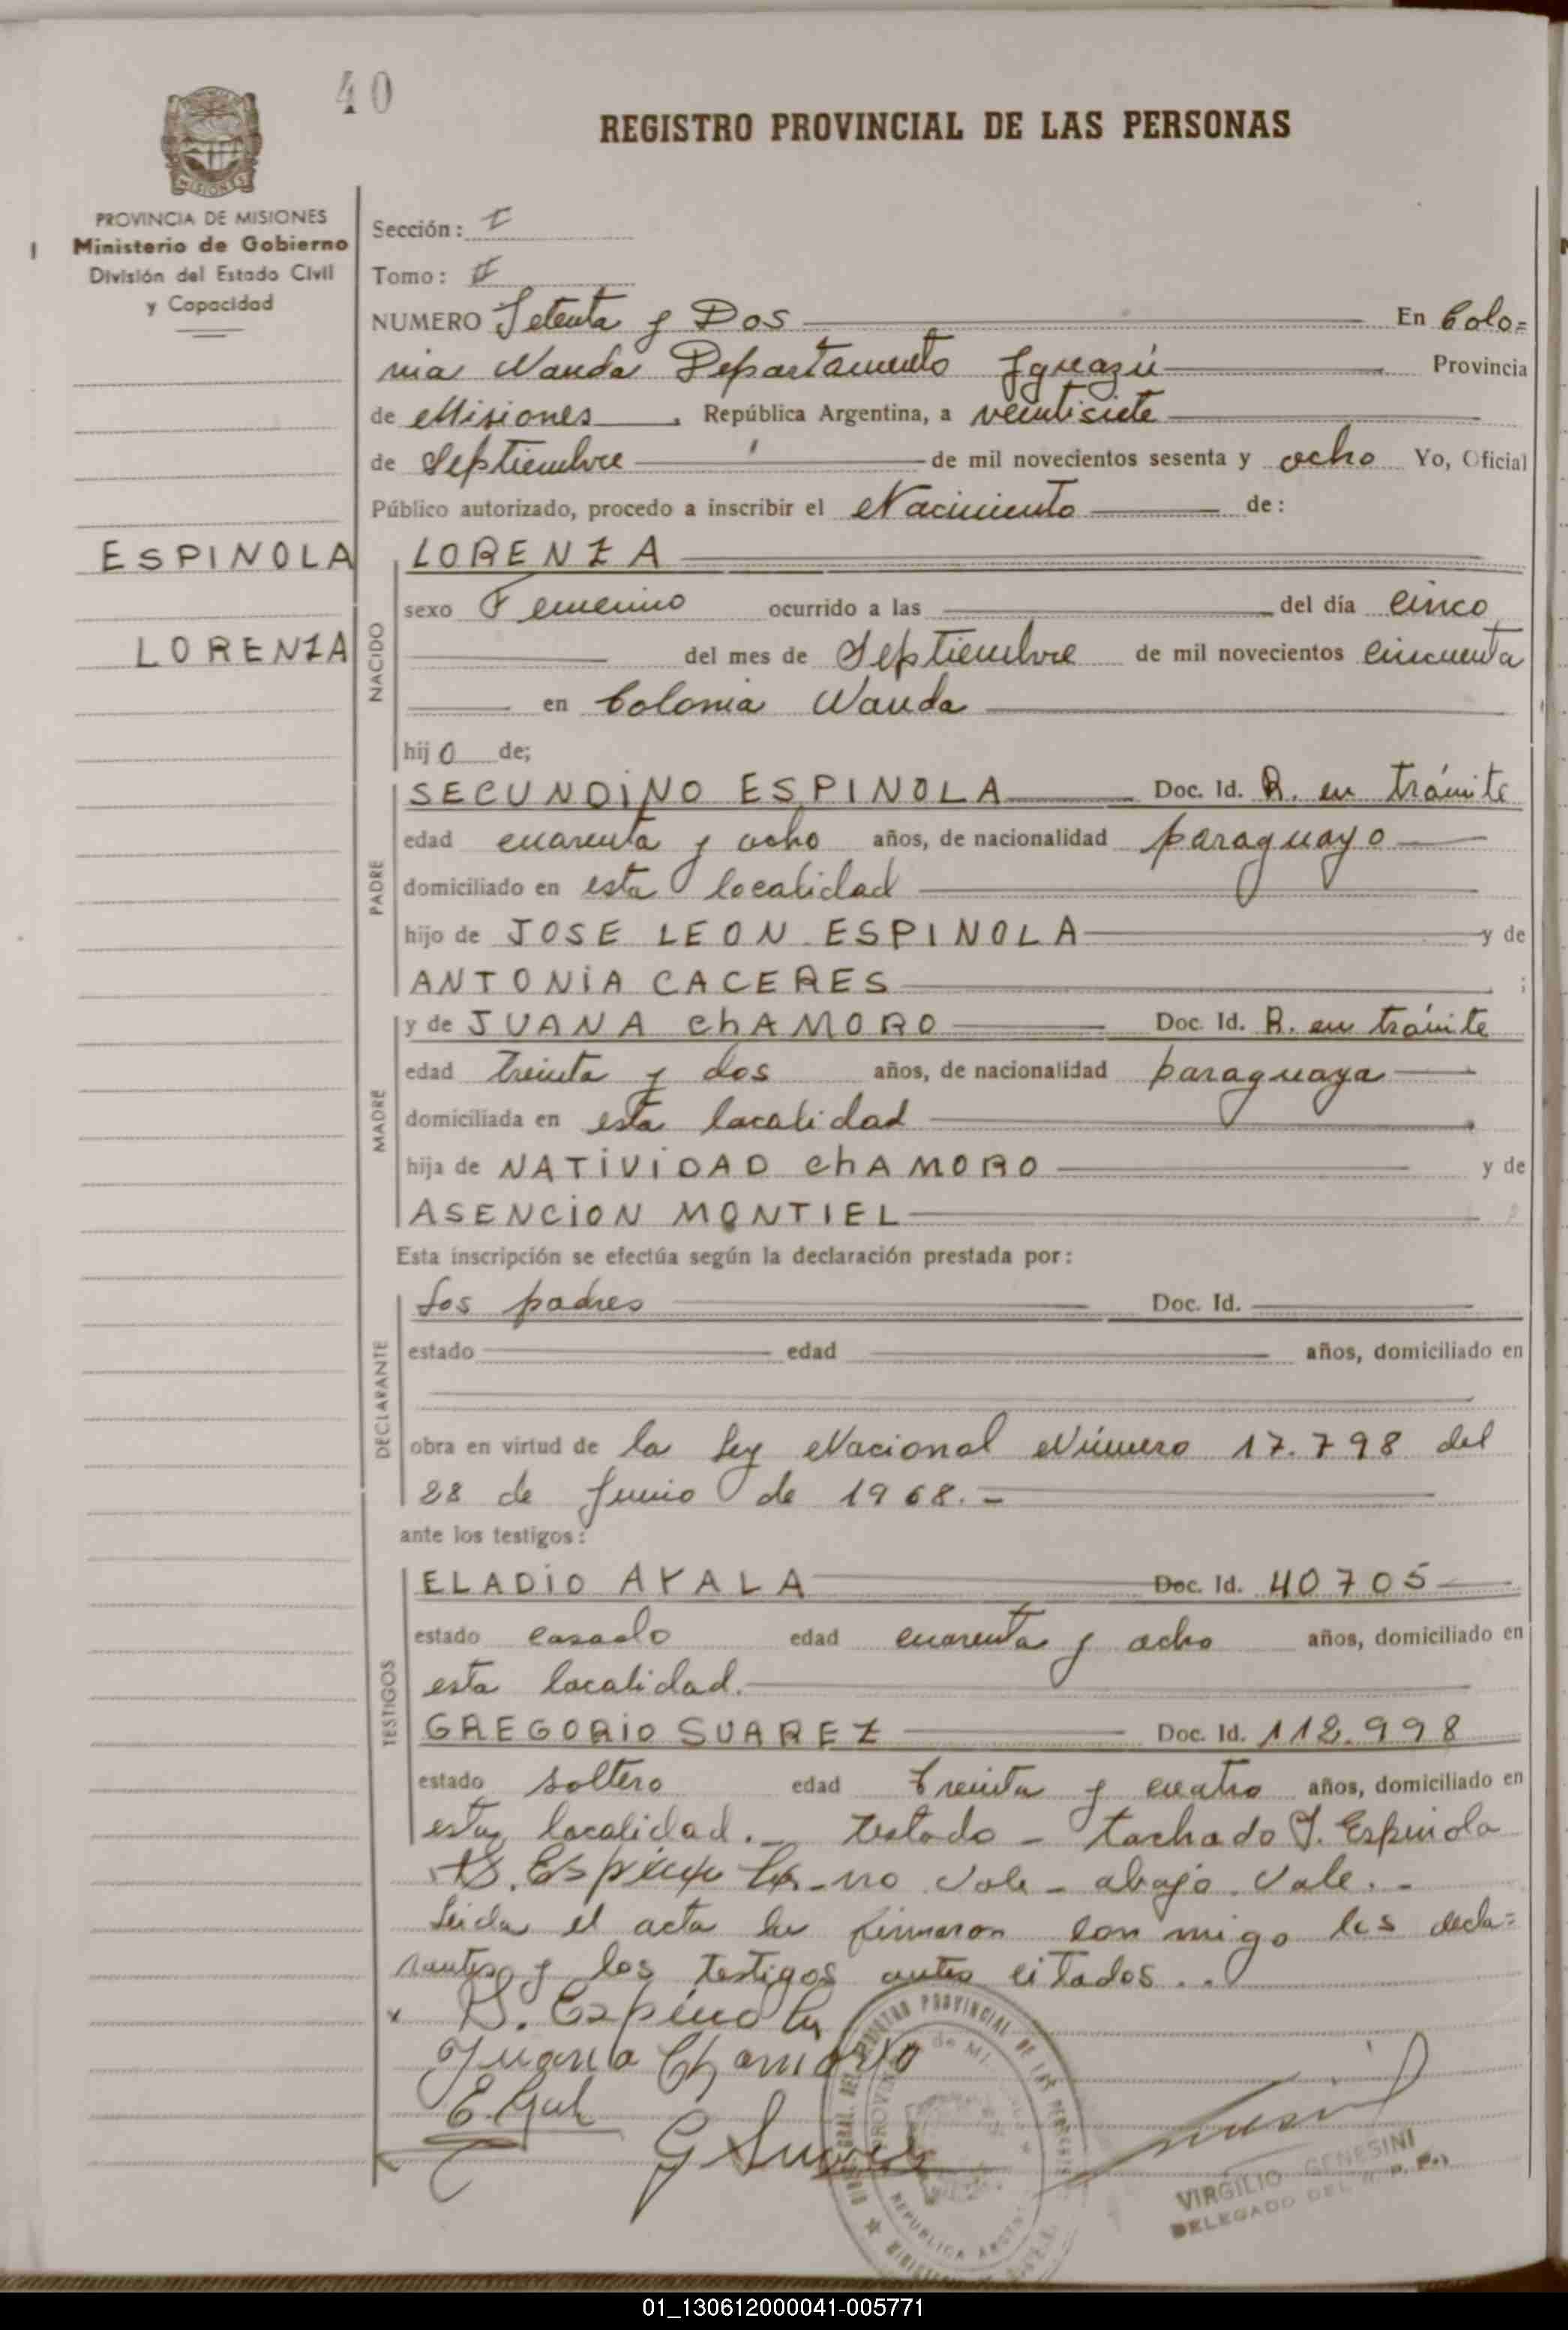 40
REGISTRO PROVINCIAL DE LAS PERSONAS
MISIONES
PROVINCIA DE MISIONES
Ministerio de Gobierno
División del Estado Civil
y Capacidad
Sección: I
Tomo: II
NUMERO Setenta y Dos En Colo=
nia Wanda Departamento Iguazú Provincia
de Misiones, República Argentina, a veintisiete
de Septiembre de mil novecientos sesenta y ocho Yo, Oficial
Público autorizado, procedo a inscribir el Nacimiento de:
ESPINOLA
LORENZA
NACIDO
LORENZA
sexo Femenino ocurrido a las del día cinco
del mes de Septiembre de mil novecientos cincuenta
en Colonia Wanda
hijo de;
PADRE
SECUNDINO ESPINOLA Doc. Id. R. en trámite
edad cuarenta y ocho años, de nacionalidad paraguayo
domiciliado en esta localidad
hijo de JOSE LEON ESPINOLA y de
ANTONIA CACERES ;
MADRE
y de JUANA ChAMORO Doc. Id. R. en trámite
edad treinta y dos años, de nacionalidad paraguaya
domiciliada en esta localidad
hija de NATIVIDAD ChAMORO y de
ASENCION MONTIEL
Esta inscripción se efectúa según la declaración prestada por:
DECLARANTE
Los padres Doc. Id.
estado edad años, domiciliado en
obra en virtud de la Ley Nacional Número 17.798 del
28 de Junio de 1968.-
ante los testigos:
TESTIGOS
ELADIO AYALA Doc. Id. 40705
estado casado edad cuarenta y ocho años, domiciliado en
esta localidad.
GREGORIO SUAREZ Doc. Id. 112.998
estado soltero edad treinta y cuatro años, domiciliado en
esta localidad.- testado - tachado S. Espinola
S. Espinola - no vale - abajo. Vale.-
Leida el acta la firmaron conmigo los decla=
rantes y los testigos antes citados..
x S. Espinola
Juana Chamorro
G Suarez
REGISTRO PROVINCIAL DE LAS PERSONAS
REPUBLICA
VIRGILIO GENESINI
DELEGADO DEL R. P. P.
01_130612000041-005771